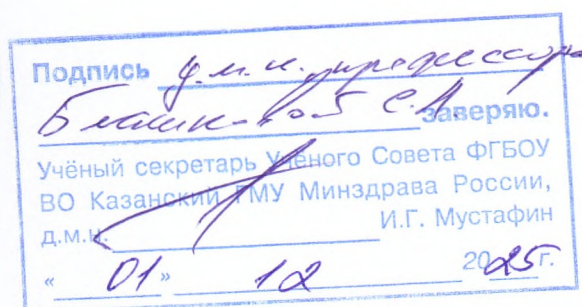 Подпись д.м.н. профессора
Близнюковой С.А. заверяю.
Учёный секретарь Учёного Совета ФГБОУ
ВО Казанский ГМУ Минздрава России,
д.м.н. И.Г. Мустафин
« 01 » 12 2025 г.